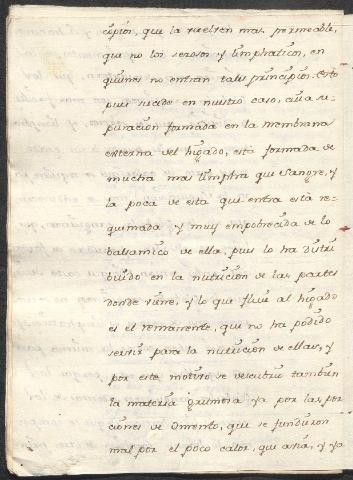 cipios, que la vuelven mas permeable,
que no los serosos y limphaticos, en
quienes no entran tales principios. Esto
pues sucede en nuestro caso, cuia su-
puracion formada en la membrana
externa del higado, està formada de
mucha mas limpha que Sangre, y
la poca de esta que entra està re-
quemada y muy empobrecida de lo
balsamico de ella, pues lo ha distri
buido en la nutricion de las partes
donde viene, y lo que fluie al higado
es el remanente, que no ha podido
servir para la nutricion de ellas, y
por este motivo se descubre tambien
la materia grumosa ya por las por
ciones de omento, que se fundieron
mal por el poco calor, que avia, y ya